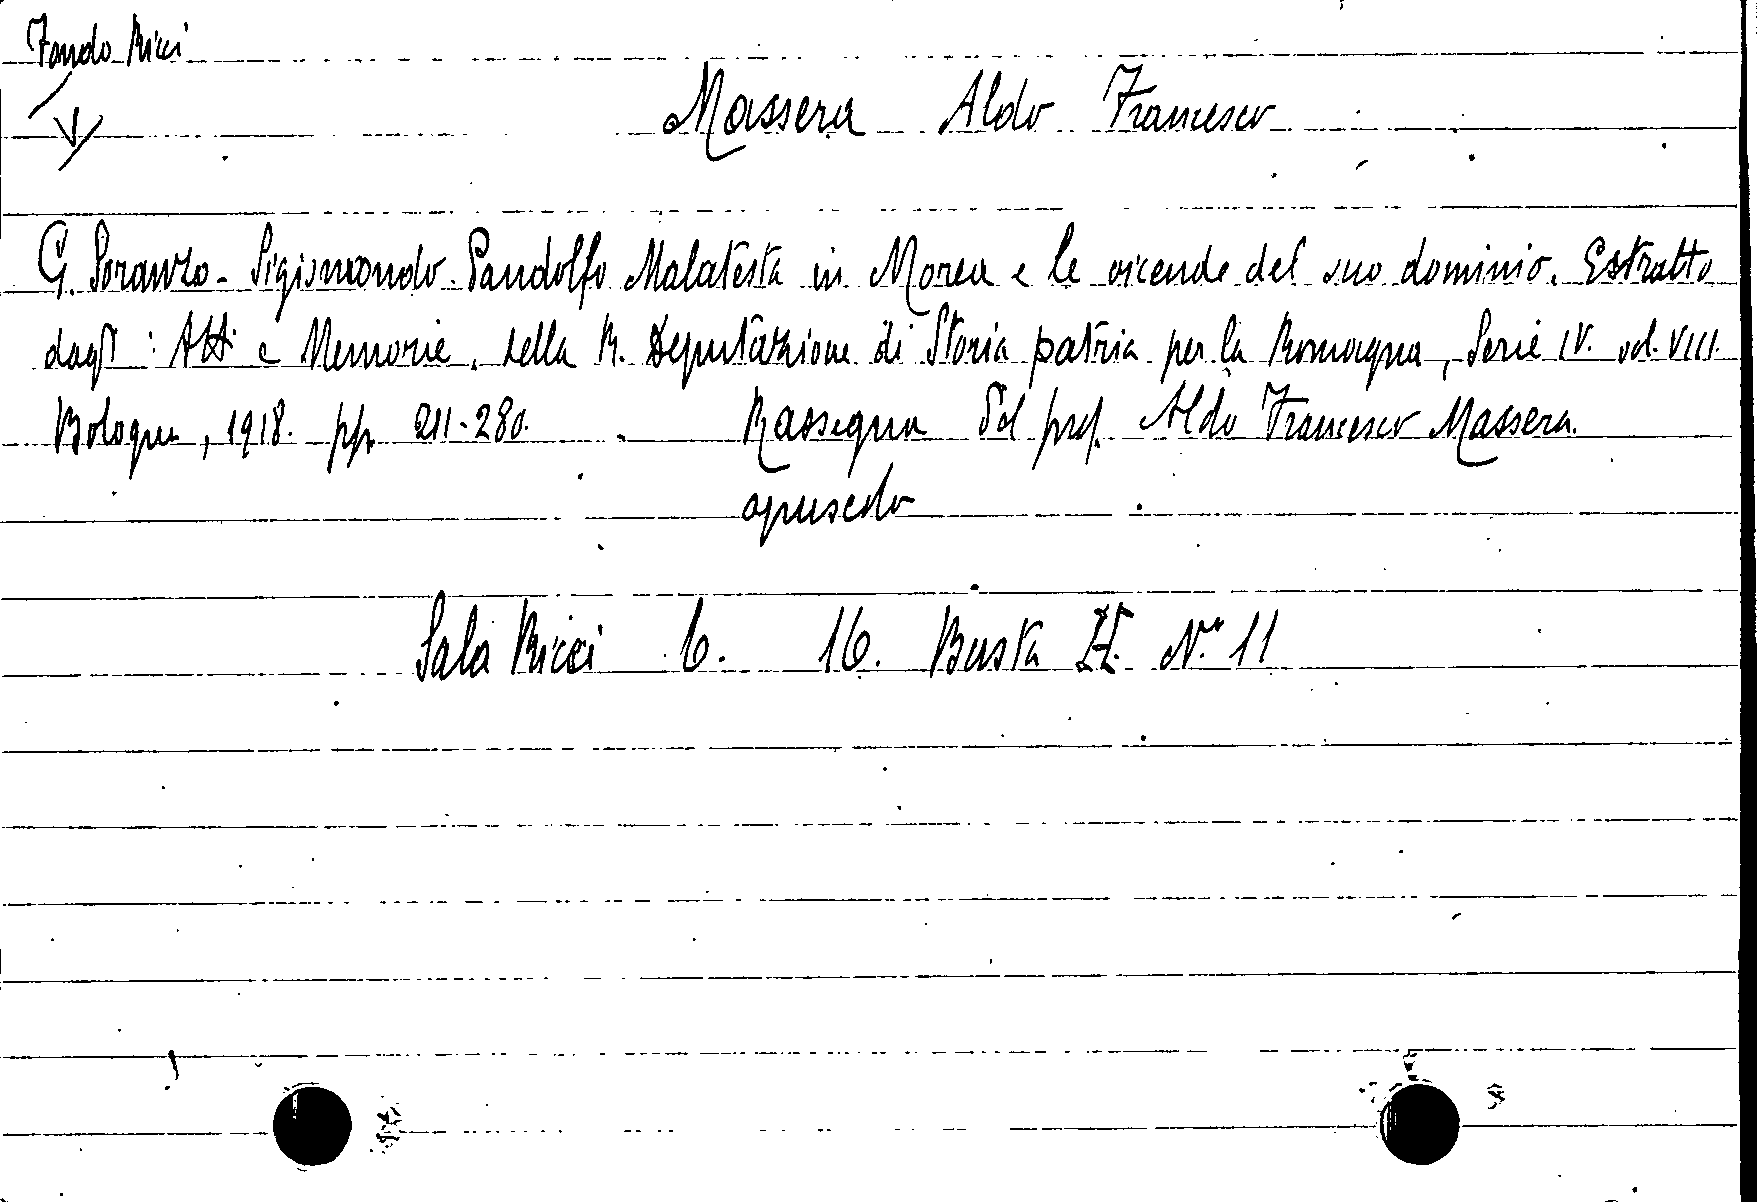 Fondo Ricci
Massera Aldo Francesco
G. Soranzo - Sigismondo Pandolfo Malatesta in Morea e le vicende del suo dominio. Estratto
dagli : Atti e Memorie, della R. Deputazione di Storia patria per la Romagna, Serie IV. vol. VIII.
Bologna, 1918. pp. 211-280. Rassegna del prof. Aldo Francesco Massera.
opuscolo
Sala Ricci 6. 16. Busta II. N° 11